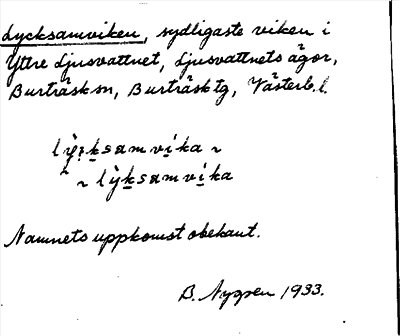 Lycksamviken, sydligaste viken i
Yttre Ljusvattnet, Ljusvattnets ägor,
Burträsk sn, Burträsk tg, Västerb. l.
lyksamvika ~
~ lyksamvika
Namnets uppkomst obekant.
B. Nygren 1933.